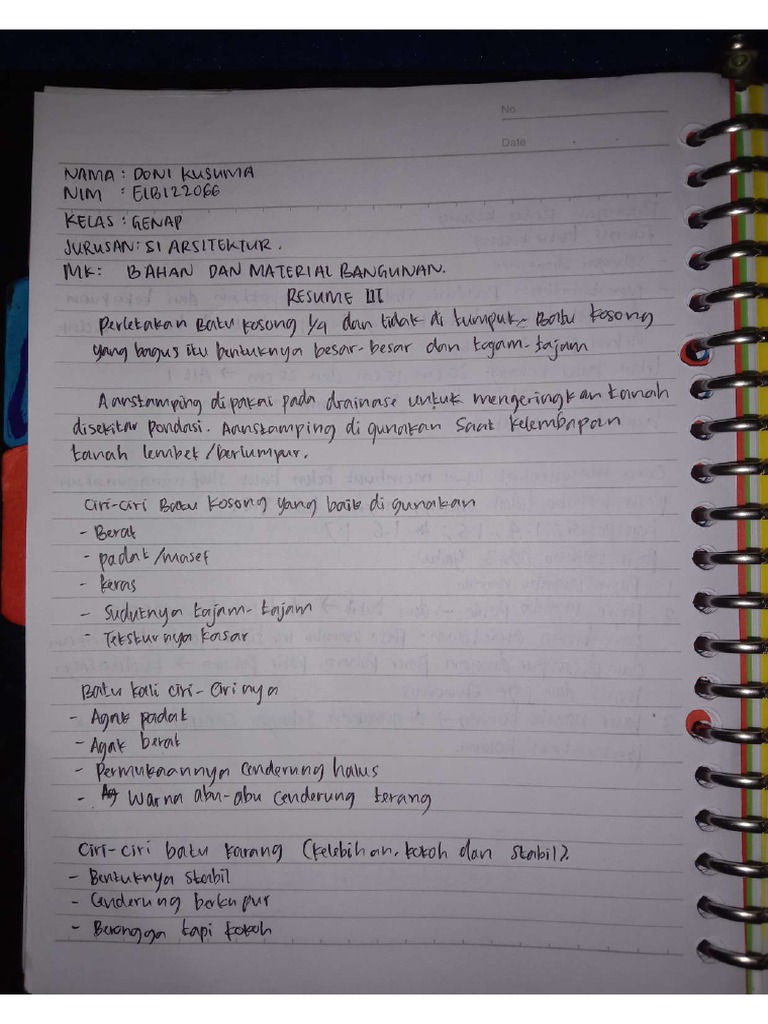 No.
Date
NAMA : DONI KUSUMA
NIM : E1B122066
KELAS : GENAP
JURUSAN: S1 ARSITEKTUR.
MK: BAHAN DAN MATERIAL BANGUNAN.
RESUME III
Perletakan Batu kosong 1/4 dan tidak di tumpuk. Batu kosong
yang bagus itu bentuknya besar-besar dan tajam-tajam
Aanstamping dipakai pada drainase untuk mengeringkan tanah
disekitar pondasi. Aanstamping di gunakan saat kelembapan
tanah lembek/berlumpur.
Ciri-ciri Batu kosong yang baik di gunakan
- Berat
- padat/masef
- keras
- Sudutnya tajam-tajam
- Teksturnya kasar
Batu kali ciri-cirinya
- Agak padat
- Agak berat
- Permukaannya cenderung halus
- Warna abu-abu cenderung terang
Ciri-ciri batu karang (kelebihan, kokoh dan stabil).
- Bentuknya stabil
- Cenderung berkapur
- Berongga tapi kokoh